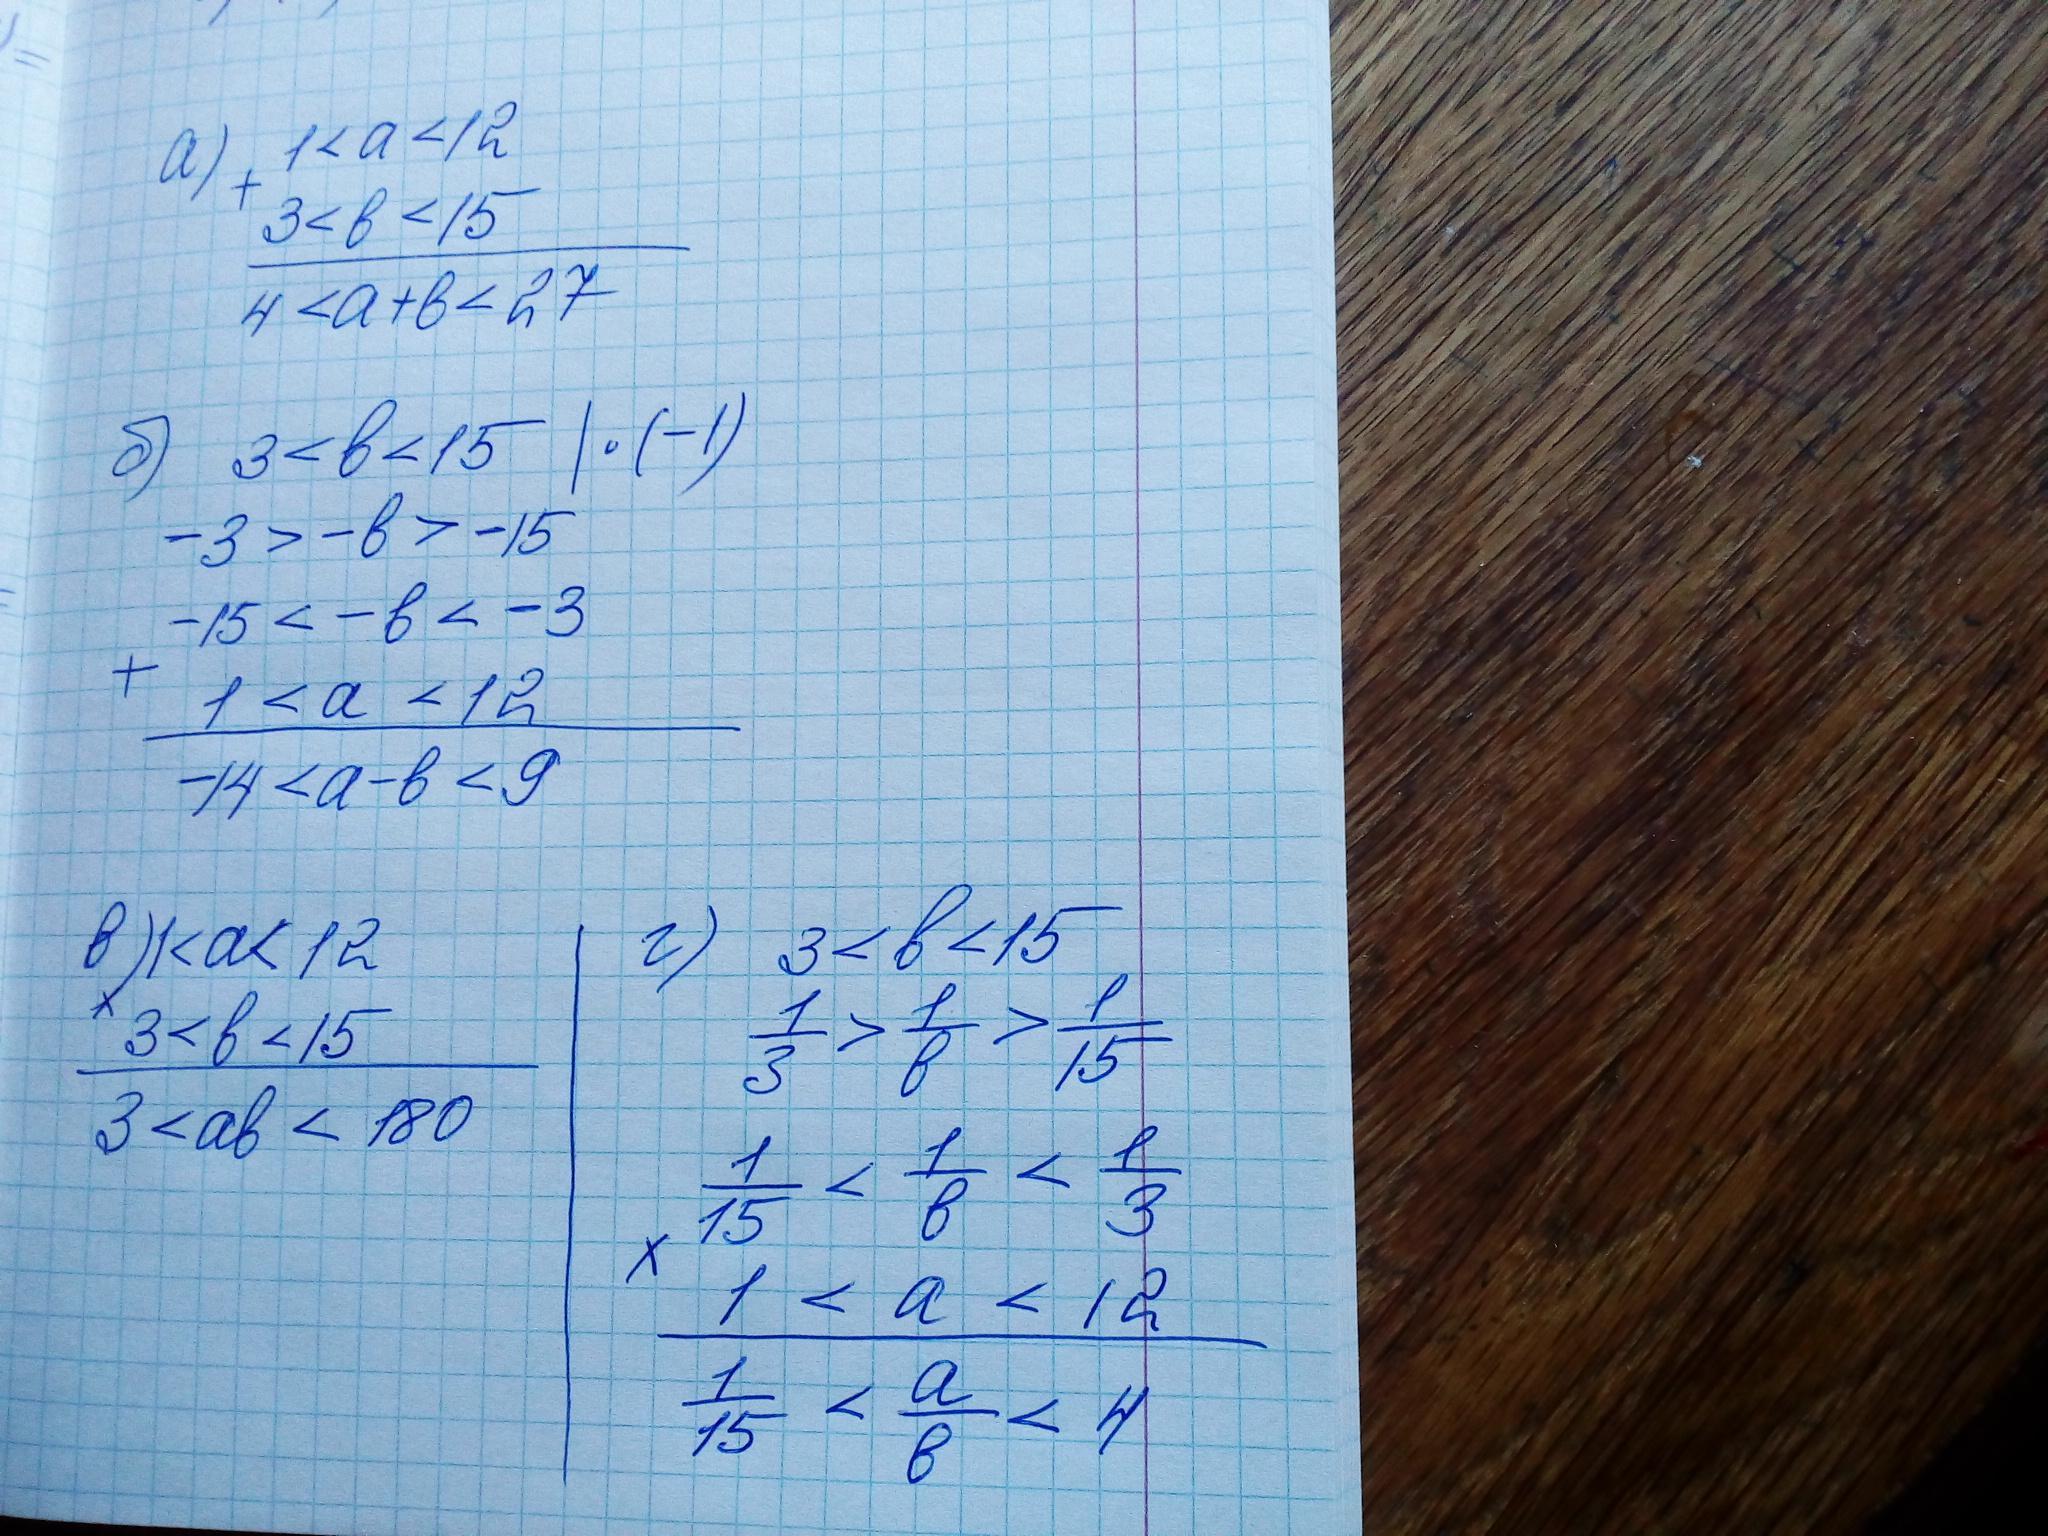 а) 1 < a < 12
+
3 < b < 15
4 < a+b < 27
б) 3 < b < 15 | · (-1)
-3 > -b > -15
-15 < -b < -3
+
1 < a < 12
-14 < a-b < 9
в) 1 < a < 12
×
3 < b < 15
3 < ab < 180
г) 3 < b < 15
1/3 > 1/b > 1/15
1/15 < 1/b < 1/3
×
1 < a < 12
1/15 < a/b < 4